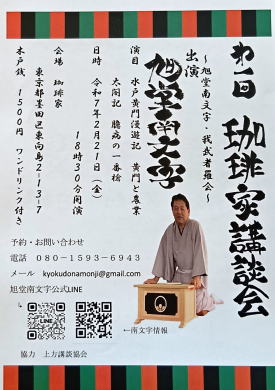 第一回 珈琲家講談会
～旭堂南文字・我武者羅会～
出演
旭堂南文字
演目 水戸黄門漫遊記 黄門と農業
太閤記 臆病の一番槍
日時 令和7年2月21日(金)
18時30分開演
会場 珈琲家
東京都墨田区東向島2-13-7
木戸銭 1500円 ワンドリンク付き
予約・お問い合わせ
電話 080-1593-6943
メール kyokudonamonji@gmail.com
旭堂南文字公式LINE
LINE
←南文字情報
協力 上方講談協会